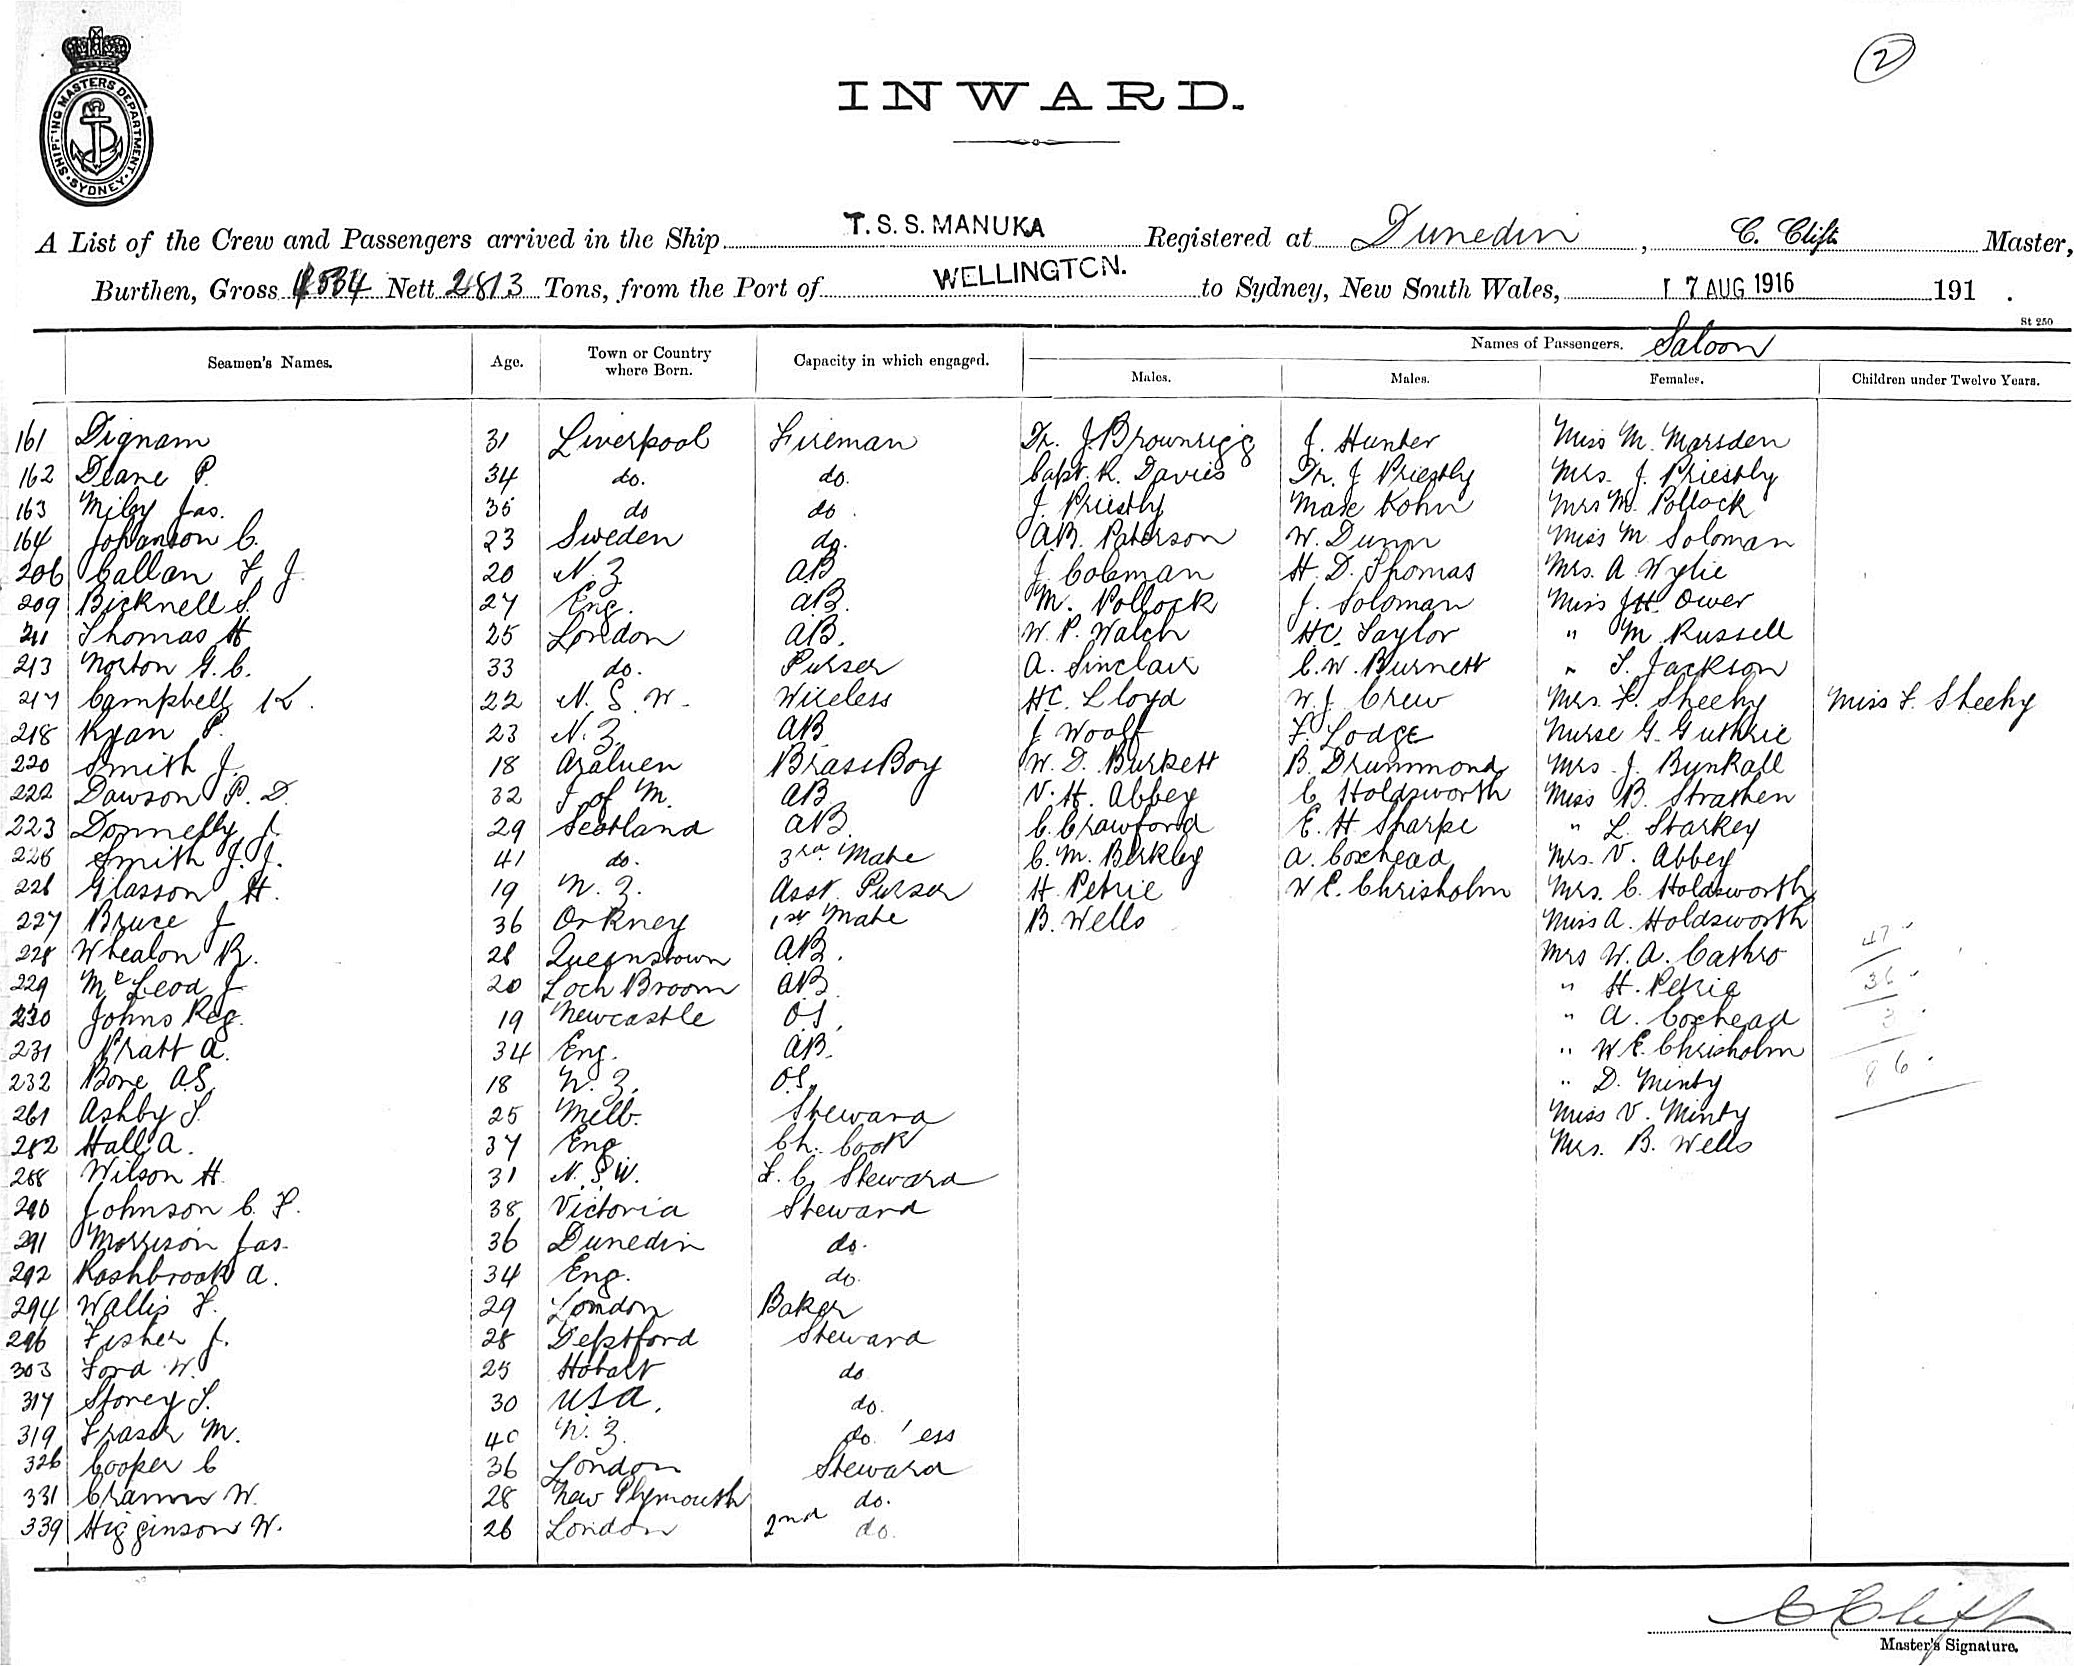 2
SHIPPING MASTERS DEPARTMENT
SYDNEY
INWARD.
A List of the Crew and Passengers arrived in the Ship T.S.S. MANUKA Registered at Dunedin, C. Clift Master,
Burthen, Gross 4534 Nett 2813 Tons, from the Port of WELLINGTON. to Sydney, New South Wales, 17 AUG 1916 191 .
St 250
Seamen's Names. Age. Town or Country where Born. Capacity in which engaged. Names of Passengers. Saloon
Males. Males. Females. Children under Twelve Years.
161 Dignam 31 Liverpool Fireman Dr. J. Brownrigg J. Hunter Miss M. Marsden
162 Deane P. 34 do. do. Capt. R. Davies Dr. J Priestly Mrs. J. Priestly
163 Miley Jas. 35 do do. J. Priestly Max Kohn Mrs M. Pollock
164 Johanson C. 23 Sweden do. A.B. Paterson W. Dunn Miss M Soloman
206 Callan F. J. 20 N. Z AB J. Coleman H. D. Thomas Mrs. A. Wylie
209 Bicknell S. 27 Eng. AB. M. Pollock J. Soloman Miss J.H. Ower
211 Thomas H 25 London AB. W. P. Walch H.C. Taylor " M Russell
213 Norton G. C. 33 do. Purser A. Sinclair C. W. Burnett " S. Jackson
217 Campbell K. 22 N. S. W. Wireless H.C. Lloyd W. J. Crew Mrs. F. Sheehy Miss F. Sheehy
218 Ryan P. 23 N. Z AB J Woolf F. Lodge Nurse G. Guthrie
220 Smith J. 18 Araluen Brass Boy W. D. Burkett B. Drummond Mrs. J. Bunkall
222 Dawson P. D. 32 I of M. AB V. H. Abbey C Holdsworth Miss B. Strathen
223 Donnelly J. 29 Scotland AB. C. Crawford E. H Sharpe " L. Starkey
225 Smith J. J. 41 do. 3rd Mate C. M. Berkley A. Coxhead Mrs. V. Abbey
226 Glasson H. 19 N. Z. Asst. Purser H. Petrie W E. Chrisholm Mrs. C. Holdsworth
227 Bruce J 36 Orkney 1st Mate B. Wells Miss A. Holdsworth
228 Whealon R. 28 Queenstown AB. Mrs W. A. Cathro
229 McLeod J 20 Loch Broom AB " H. Petrie
230 Johns Reg. 19 Newcastle O.S. " A. Coxhead
231 Pratt A. 34 Eng. AB. " W E. Chrisholm
232 Bone A.S. 18 N. Z. O.S. " D. Minty
261 Ashby S. 25 Melb. Steward Miss V. Minty
282 Hall A. 37 Eng Ch. Cook Mrs. B. Wells
288 Wilson H. 31 N. S. W. F. C. Steward
290 Johnson C. F. 38 Victoria Steward
291 Morrison Jas. 36 Dunedin do.
292 Rashbrook A. 34 Eng. do.
294 Wallis F. 29 London Baker
296 Fisher J. 28 Deptford Steward
303 Ford W. 25 Hobart do
317 Storey S. 30 USA. do.
319 Fraser M. 40 N. Z. do. 'ess
326 Cooper C 36 London Steward
331 W. 28 New Plymouth do.
339 Higginson W. 26 London 2nd do.
47
36
3
86
C Clift
Master's Signature.